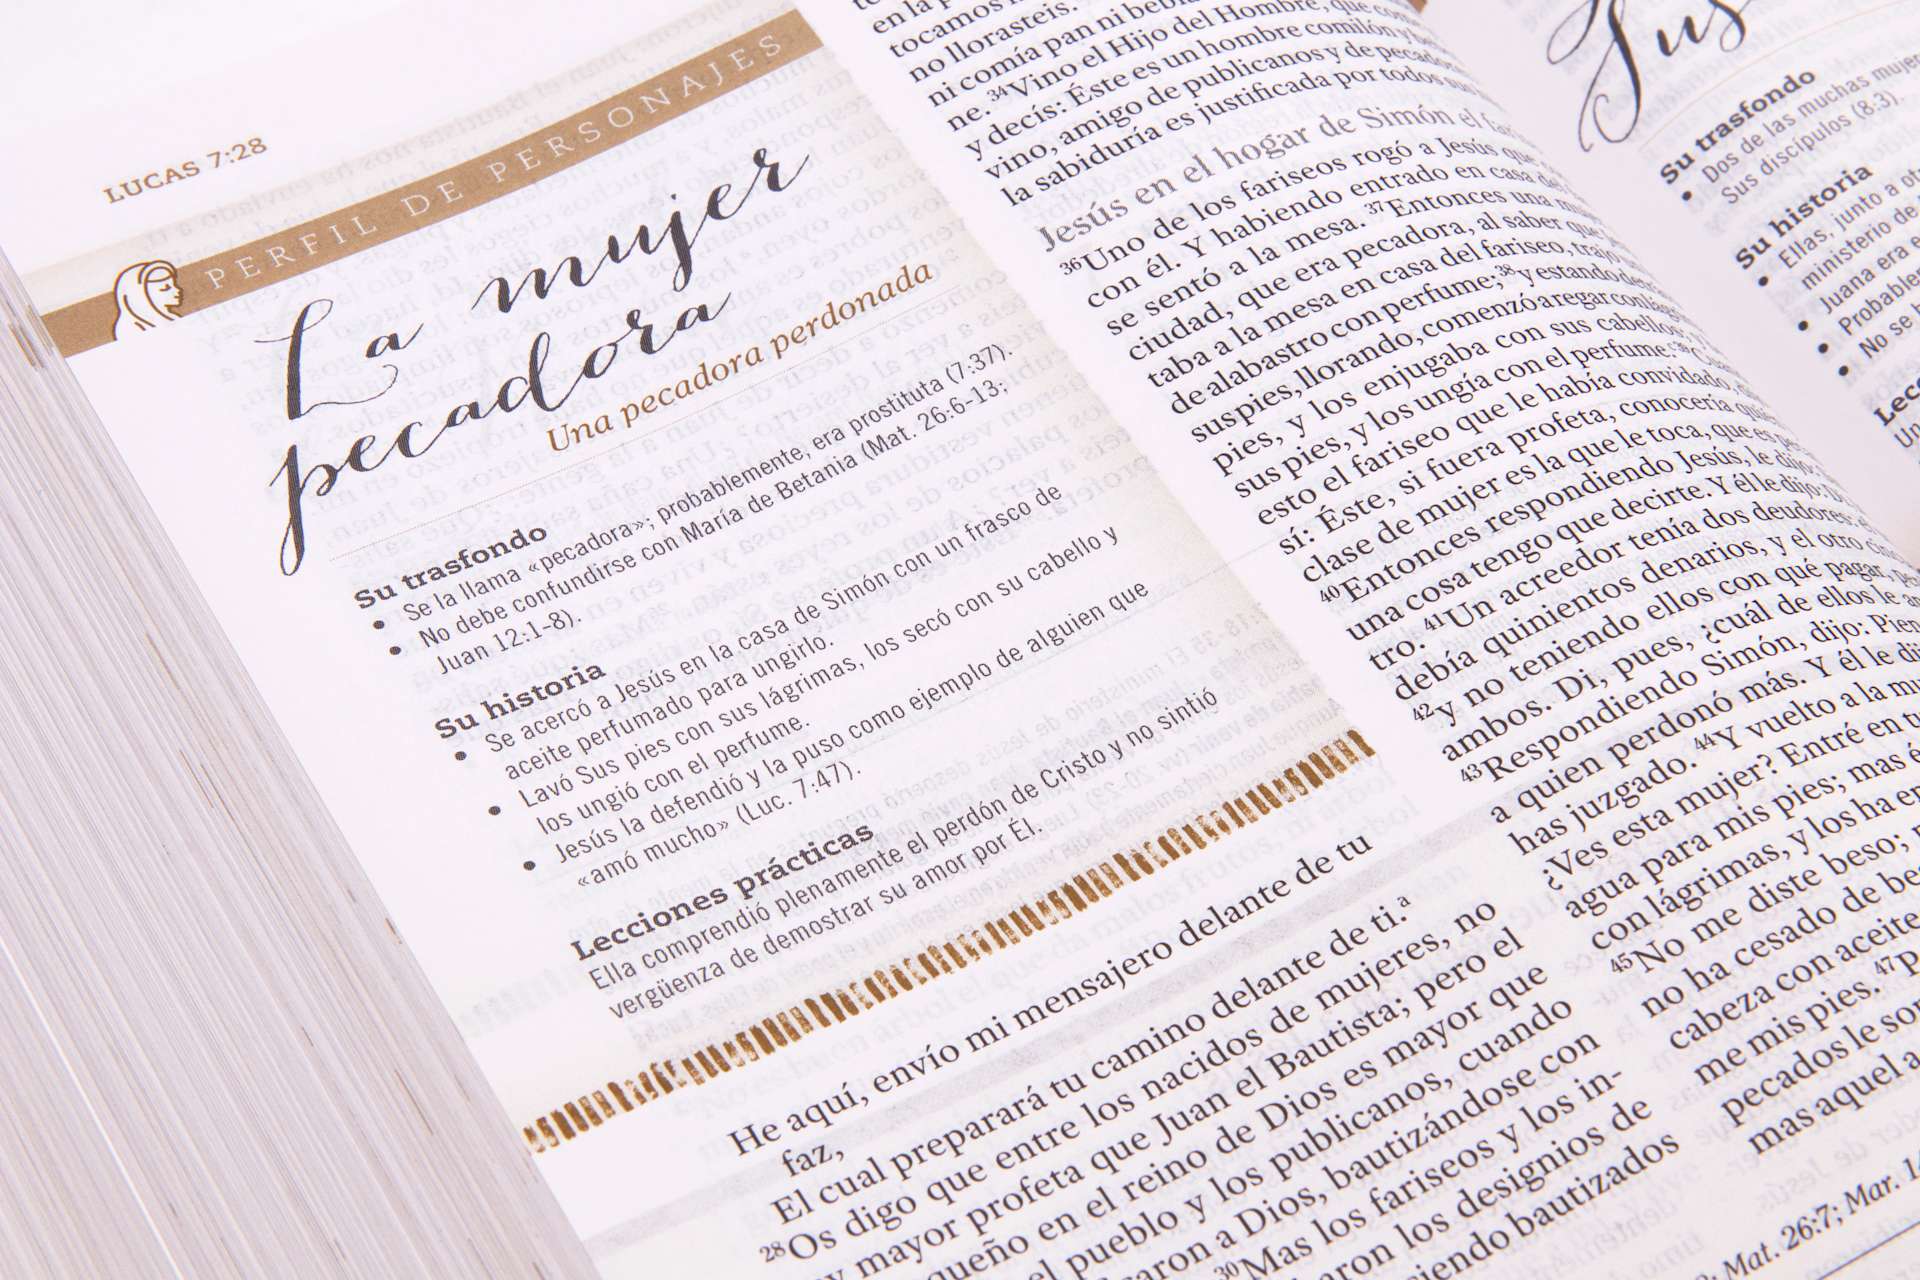 LUCAS 7:28
PERFIL DE PERSONAJES
La mujer
pecadora
Una pecadora perdonada
Su trasfondo
• Se la llama «pecadora»; probablemente, era prostituta (7:37).
• No debe confundirse con María de Betania (Mat. 26:6-13;
Juan 12:1-8).
Su historia
• Se acercó a Jesús en la casa de Simón con un frasco de
aceite perfumado para ungirlo.
• Lavó Sus pies con sus lágrimas, los secó con su cabello y
los ungió con el perfume.
• Jesús la defendió y la puso como ejemplo de alguien que
«amó mucho» (Luc. 7:47).
Lecciones prácticas
Ella comprendió plenamente el perdón de Cristo y no sintió
vergüenza de demostrar su amor por Él.
He aquí, envío mi mensajero delante de tu
faz,
El cual preparará tu camino delante de ti.ª
28Os digo que entre los nacidos de mujeres, no
mayor profeta que Juan el Bautista; pero el
en el reino de Dios es mayor que
el pueblo y los publicanos, cuando
a Dios, bautizándose con
30Mas los fariseos y los in-
los designios de
bautizados
en la
tocamos
no llorasteis.
ni comía pan ni
ne. 34Vino el Hijo del Hombre, que
y decís: Éste es un hombre comilón y
vino, amigo de publicanos y de
la sabiduría es justificada por todos sus
Jesús en el hogar de Simón el
36Uno de los fariseos rogó a Jesús que
con él. Y habiendo entrado en casa del
se sentó a la mesa. 37Entonces una
ciudad, que era pecadora, al saber que
taba a la mesa en casa del fariseo, trajo
de alabastro con perfume; 38y estando
sus pies, llorando, comenzó a regar con
pies, y los enjugaba con sus cabellos;
sus pies, y los ungía con el perfume. 39
esto el fariseo que le había convidado,
sí: Éste, si fuera profeta, conocería
clase de mujer es la que le toca, que es
40Entonces respondiendo Jesús, le dijo:
una cosa tengo que decirte. Y él le dijo:
tro. 41Un acreedor tenía dos deudores:
debía quinientos denarios, y el otro
42y no teniendo ellos con qué pagar,
ambos. Di, pues, ¿cuál de ellos le
43Respondiendo Simón, dijo:
a quien perdonó más. Y él le
has juzgado. 44Y vuelto a la
¿Ves esta mujer? Entré en
agua para mis pies; mas
con lágrimas, y los ha
45No me diste beso;
no ha cesado de
cabeza con aceite
me mis pies. 47
pecados le
mas aquel
Mat. 26:7; Mar.
Su trasfondo
• Dos de las muchas
Sus discípulos (8:3).
Su historia
• Ellas, junto a
ministerio de
• Juana era
•
• No se